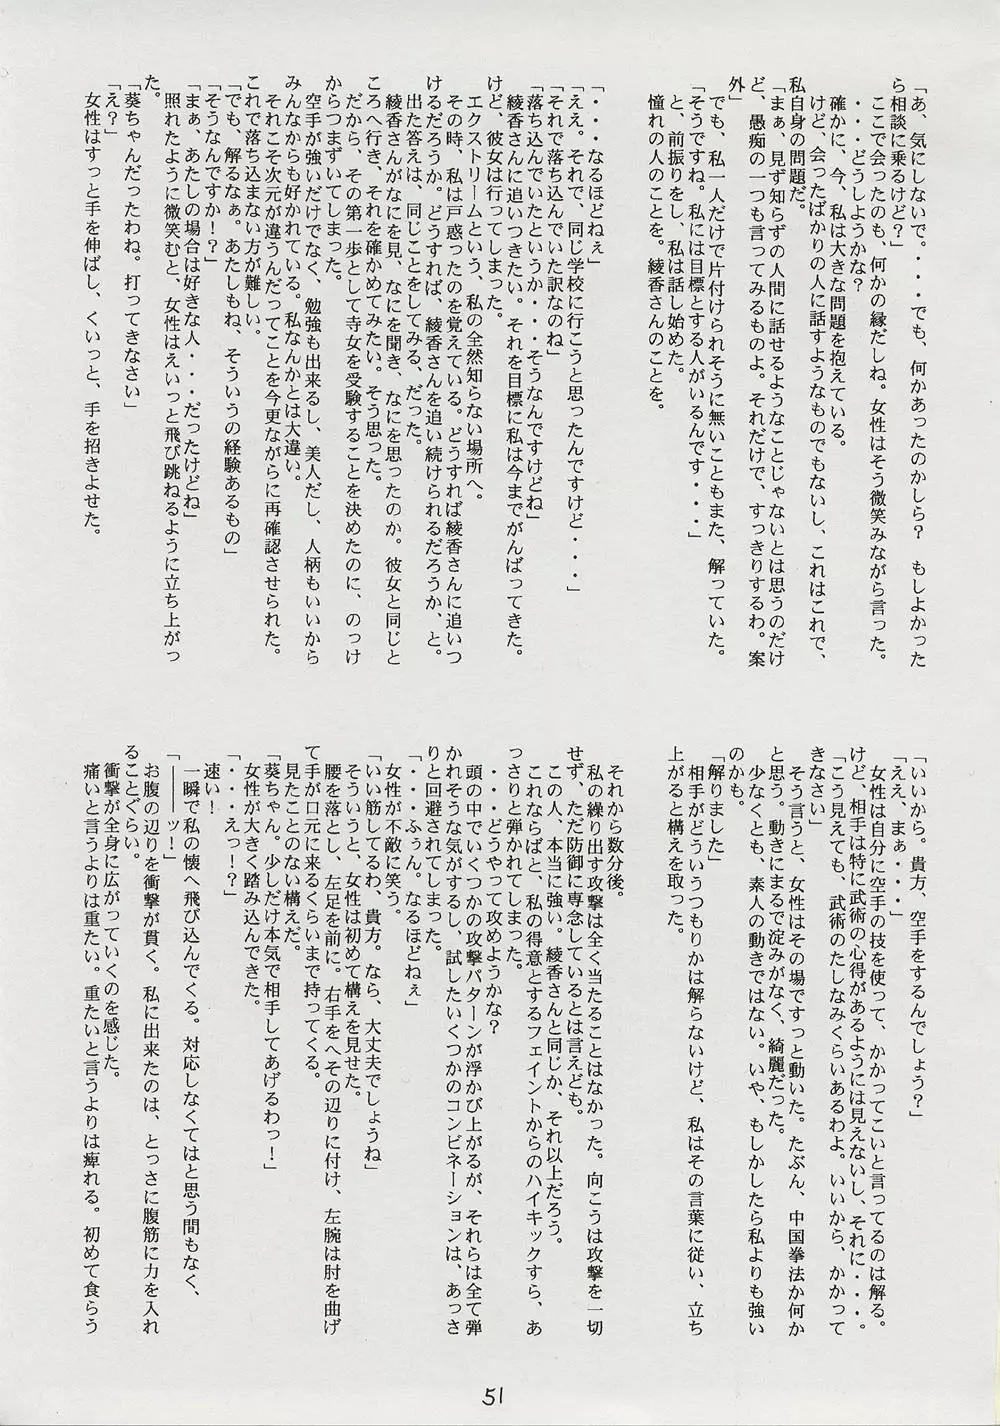 「あ、気にしないで。・・・でも、何かあったのかしら？　もしよかった
ら相談に乗るけど？」
　ここで会ったのも、何かの縁だしね。女性はそう微笑みながら言った。
　・・・どうしようかな？
　確かに、今、私は大きな問題を抱えている。
　けど、会ったばかりの人に話すようなものでもないし、これはこれで、
私自身の問題だ。
「まぁ、見ず知らずの人間に話せるようなことじゃないとは思うのだけ
ど、愚痴の一つも言ってみるものよ。それだけで、すっきりするわ。案
外」
　でも、私一人だけで片付けられそうに無いこともまた、解っていた。
「そうですね。私には目標とする人がいるんです・・・」
　と、前振りをし、私は話し始めた。
　憧れの人のことを。綾香さんのことを。
「・・・なるほどねぇ」
「ええ。それで、同じ学校に行こうと思ったんですけど・・・」
「それで落ち込んでいた訳なのね」
「落ち込んでいたというか・・・そうなんですけどね」
　綾香さんに追いつきたい。それを目標に私は今までがんばってきた。
けど、彼女は行ってしまった。
　エクストリームという、私の全然知らない場所へ。
　その時、私は戸惑ったのを覚えている。どうすれば綾香さんに追いつ
けるだろうか。どうすれば、綾香さんを追い続けられるだろうか、と。
　出た答えは、同じことをしてみる、だった。
　綾香さんがなにを見、なにを聞き、なにを思ったのか。彼女と同じと
ころへ行き、それを確かめてみたい。そう思った。
　だから、その第一歩として寺女を受験することを決めたのに、のっけ
からつまずいてしまった。
　空手が強いだけでなく、勉強も出来るし、美人だし、人柄もいいから
みんなからも好かれている。私なんかとは大違い。
　それこそ次元が違うんだってことを今更ながらに再確認させられた。
これで落ち込まない方が難しい。
「でも、解るなぁ。あたしもね、そういうの経験あるもの」
「そうなんですか！？」
「まぁ、あたしの場合は好きな人・・・だったけどね」
　照れたように微笑むと、女性はえいっと飛び跳ねるように立ち上がっ
た。
「葵ちゃんだったわね。打ってきなさい」
「え？」
　女性はすっと手を伸ばし、くいっと、手を招きよせた。
「いいから。貴方、空手をするんでしょう？」
「ええ、まぁ・・・」
　女性は自分に空手の技を使って、かかってこいと言ってるのは解る。
けど、相手は特に武術の心得があるようには見えないし、それに・・・。
「こう見えても、武術のたしなみくらいあるわよ。いいから、かかって
きなさい」
　そう言うと、女性はその場ですっと動いた。たぶん、中国拳法か何か
と思う。動きにまるで淀みがなく、綺麗だった。
　少なくとも、素人の動きではない。いや、もしかしたら私よりも強い
のかも。
「解りました」
　相手がどういうつもりかは解らないけど、私はその言葉に従い、立ち
上がると構えを取った。
　それから数分後。
　私の繰り出す攻撃は全く当たることはなかった。向こうは攻撃を一切
せず、ただ防御に専念しているとは言えども。
　この人、本当に強い。綾香さんと同じか、それ以上だろう。
　これならばと、私の得意とするフェイントからのハイキックすら、あ
っさりと弾かれてしまった。
　・・・どうやって攻めようかな？
　頭の中でいくつかの攻撃パターンが浮かび上がるが、それらは全て弾
かれそうな気がするし、試したいくつかのコンビネーションは、あっさ
りと回避されてしまった。
「・・・ふぅん。なるほどねぇ」
　女性が不敵に笑う。
「いい筋してるわ、貴方。なら、大丈夫でしょうね」
　そういうと、女性は初めて構えを見せた。
　腰を落とし、左足を前に。右手をへその辺りに付け、左腕は肘を曲げ
て手が口元に来るくらいまで持ってくる。
　見たことのない構えだ。
「葵ちゃん。少しだけ本気で相手してあげるわっ！」
　女性が大きく踏み込んできた。
「・・・えっ！？」
　速い！
　一瞬で私の懐へ飛び込んでくる。対応しなくてはと思う間もなく、
「――ッ！」
　お腹の辺りを衝撃が貫く。私に出来たのは、とっさに腹筋に力を入れ
ることぐらい。
　衝撃が全身に広がっていくのを感じた。
　痛いと言うよりは重たい。重たいと言うよりは痺れる。初めて食らう
51